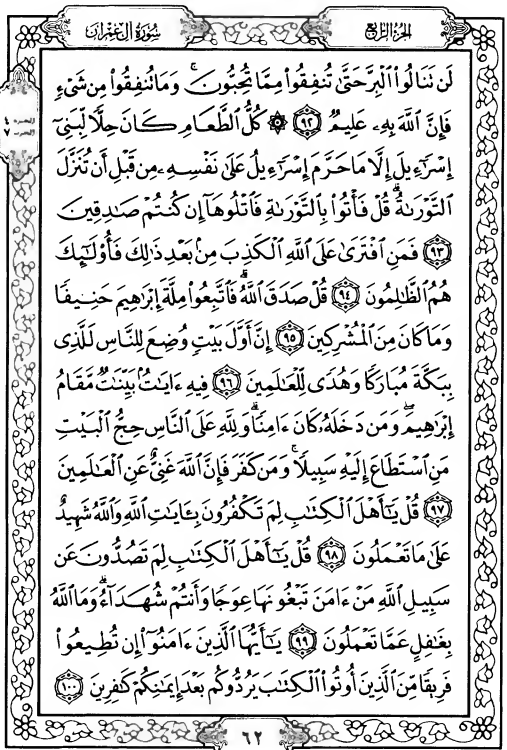 سُورَةُ آلِ عِمْرَان
الجُزْءُ الرَّابِع
لَن تَنَالُوا۟ ٱلْبِرَّ حَتَّىٰ تُنفِقُوا۟ مِمَّا تُحِبُّونَ ۚ وَمَا تُنفِقُوا۟ مِن شَىْءٍ
فَإِنَّ ٱللَّهَ بِهِۦ عَلِيمٌ ٩٢ ۞ كُلُّ ٱلطَّعَامِ كَانَ حِلًّا لِّبَنِىٓ
إِسْرَٰٓءِيلَ إِلَّا مَا حَرَّمَ إِسْرَٰٓءِيلُ عَلَىٰ نَفْسِهِۦ مِن قَبْلِ أَن تُنَزَّلَ
ٱلتَّوْرَىٰةُ ۗ قُلْ فَأْتُوا۟ بِٱلتَّوْرَىٰةِ فَٱتْلُوهَآ إِن كُنتُمْ صَـٰدِقِينَ
٩٣ فَمَنِ ٱفْتَرَىٰ عَلَى ٱللَّهِ ٱلْكَذِبَ مِنۢ بَعْدِ ذَٰلِكَ فَأُو۟لَـٰٓئِكَ
هُمُ ٱلظَّـٰلِمُونَ ٩٤ قُلْ صَدَقَ ٱللَّهُ ۗ فَٱتَّبِعُوا۟ مِلَّةَ إِبْرَٰهِيمَ حَنِيفًا
وَمَا كَانَ مِنَ ٱلْمُشْرِكِينَ ٩٥ إِنَّ أَوَّلَ بَيْتٍ وُضِعَ لِلنَّاسِ لَلَّذِى
بِبَكَّةَ مُبَارَكًا وَهُدًى لِّلْعَـٰلَمِينَ ٩٦ فِيهِ ءَايَـٰتٌۢ بَيِّنَـٰتٌ مَّقَامُ
إِبْرَٰهِيمَ ۖ وَمَن دَخَلَهُۥ كَانَ ءَامِنًا ۗ وَلِلَّهِ عَلَى ٱلنَّاسِ حِجُّ ٱلْبَيْتِ
مَنِ ٱسْتَطَاعَ إِلَيْهِ سَبِيلًا ۚ وَمَن كَفَرَ فَإِنَّ ٱللَّهَ غَنِىٌّ عَنِ ٱلْعَـٰلَمِينَ
٩٧ قُلْ يَـٰٓأَهْلَ ٱلْكِتَـٰبِ لِمَ تَكْفُرُونَ بِـَٔايَـٰتِ ٱللَّهِ وَٱللَّهُ شَهِيدٌ
عَلَىٰ مَا تَعْمَلُونَ ٩٨ قُلْ يَـٰٓأَهْلَ ٱلْكِتَـٰبِ لِمَ تَصُدُّونَ عَن
سَبِيلِ ٱللَّهِ مَنْ ءَامَنَ تَبْغُونَهَا عِوَجًا وَأَنتُمْ شُهَدَآءُ ۗ وَمَا ٱللَّهُ
بِغَـٰفِلٍ عَمَّا تَعْمَلُونَ ٩٩ يَـٰٓأَيُّهَا ٱلَّذِينَ ءَامَنُوٓا۟ إِن تُطِيعُوا۟
فَرِيقًا مِّنَ ٱلَّذِينَ أُوتُوا۟ ٱلْكِتَـٰبَ يَرُدُّوكُم بَعْدَ إِيمَـٰنِكُمْ كَـٰفِرِينَ ١٠٠
٦٢